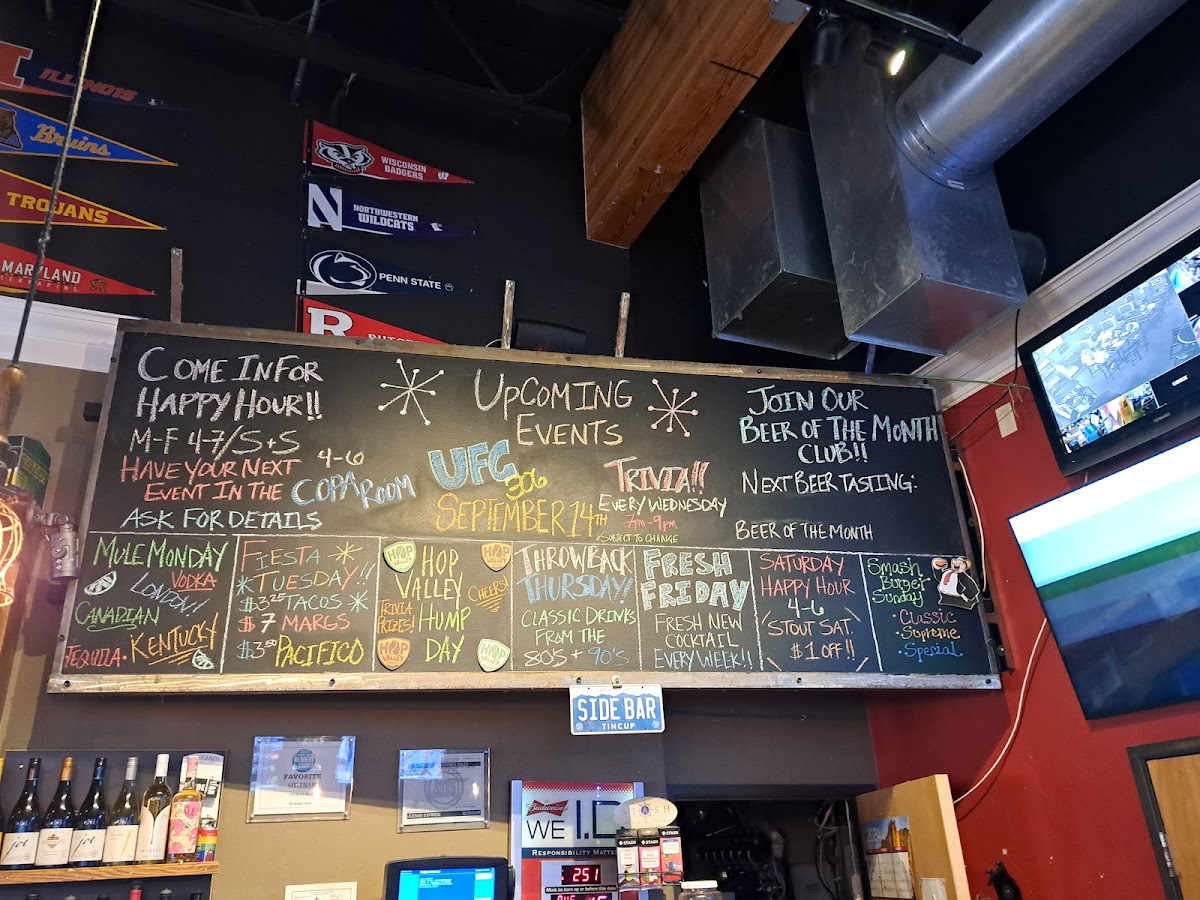 ILLINOIS
Bruins
TROJANS
MARYLAND
WISCONSIN
BADGERS
W
N
NORTHWESTERN
WILDCATS
PENN STATE
R
COME IN FOR
HAPPY HOUR!!
M-F 4-7/S+S
4-6
HAVE YOUR NEXT
EVENT IN THE COPA ROOM
ASK FOR DETAILS
UPCOMING
EVENTS
UFC
306
SEPTEMBER 14TH
TRIVIA!!
EVERY WEDNESDAY
7PM-9PM
*SUBJECT TO CHANGE
JOIN OUR
BEER OF THE MONTH
CLUB!!
NEXT BEER TASTING:
BEER OF THE MONTH
MULE MONDAY
VODKA
LONDON!
CANADIAN
KENTUCKY
TEQUILA
FIESTA
TUESDAY!!
$3.25 TACOS
$7 MARGS
$3.50 PACIFICO
HOP
HOP
VALLEY
CHEERS!
TRIVIA
PRIZES!
HUMP
DAY
HOP
VALLEY
HOP
THROWBACK
THURSDAY!
CLASSIC DRINKS
FROM THE
80'S + 90'S
FRESH
FRIDAY
FRESH NEW
COCKTAIL
EVERY WEEK!!
SATURDAY
HAPPY HOUR
4-6
STOUT SAT.
$1 OFF!!
Smash
Burger
Sunday
• Classic
• Supreme
• Special
SIDE BAR
TINCUP
FAVORITE
SIDEBAR
joel
Budweiser
WE I.D.
RESPONSIBILITY MATTERS
251
Must be born on or before this date
AUG 15
STASH
STASH
STASH